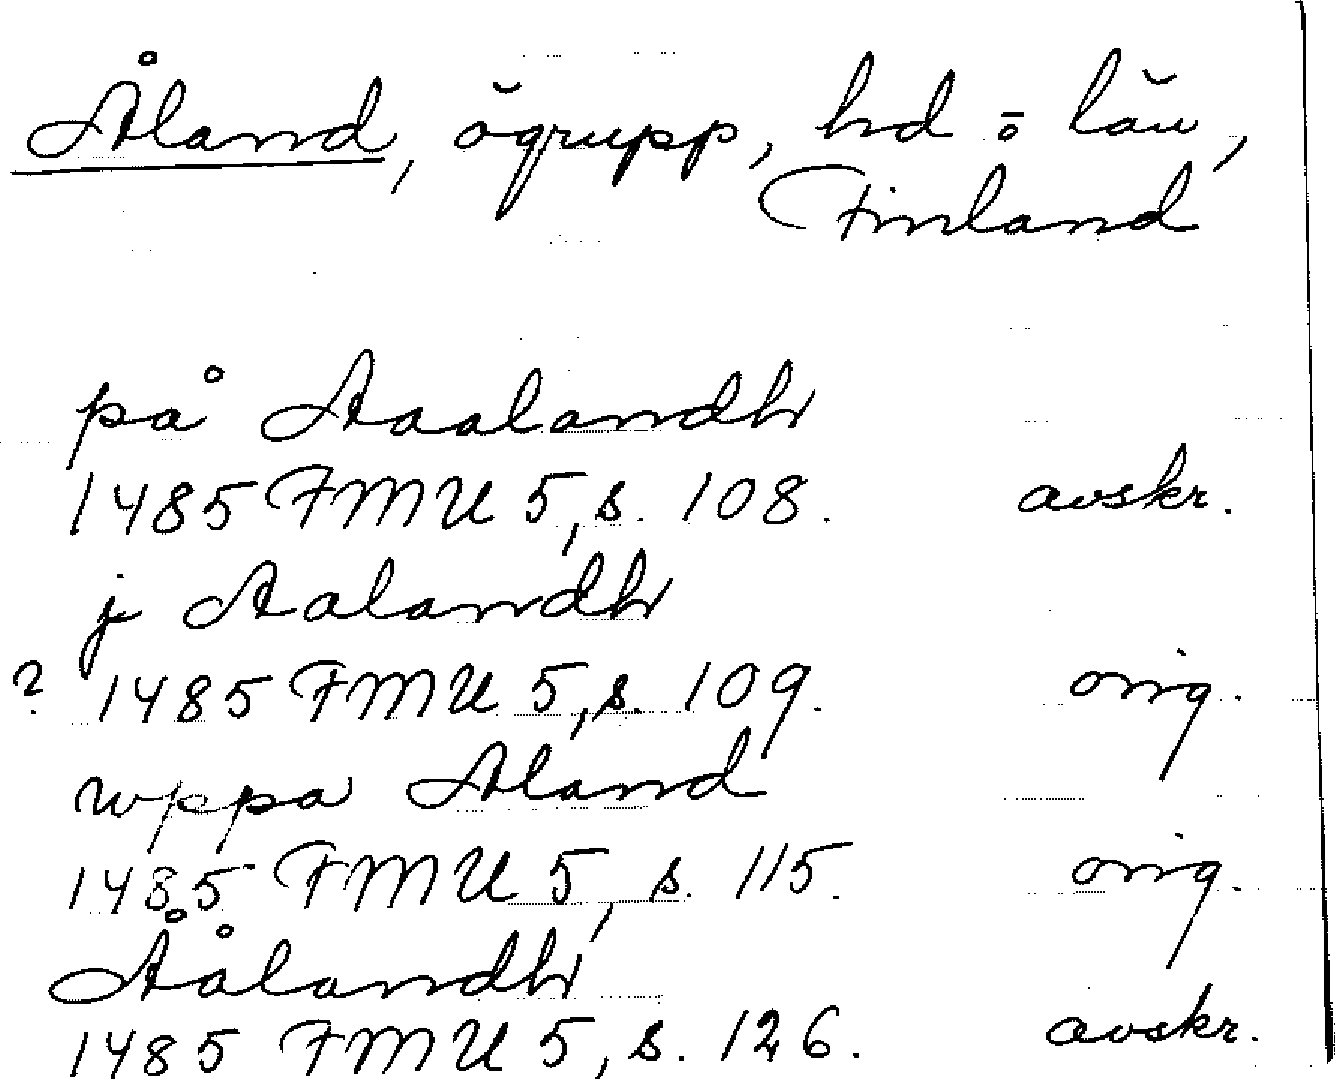 Åland, ögrupp, hd o län,
Finland
på Aaalandh
1485 FMU 5, s. 108. avskr.
j Aalandh
? 1485 FMU 5, s. 109. orig.
wppa Aland
1485 FMU 5, s. 115. orig.
Åålandh
1485 FMU 5, s. 126. avskr.